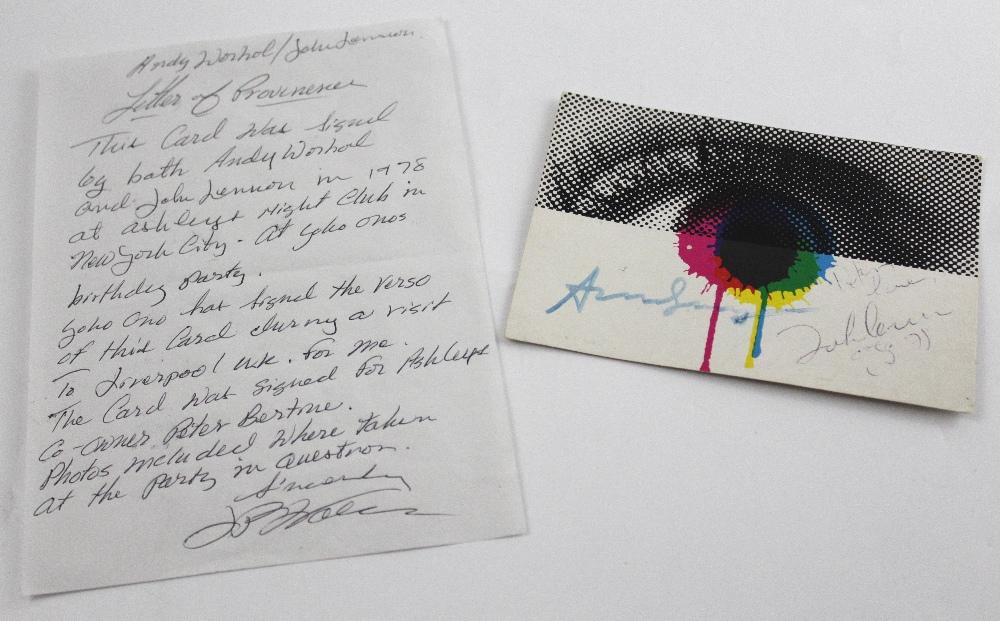 Andy Worhol/John Lennon.
Letter of Provinence
This Card was signed
by both Andy Worhol
and John Lennon in 1978
at ashleys Night Club in
New York City - At yoko onos
birthday party.
yoko ono has signed the verso
of this Card during a visit
To Liverpool uk. for me.
The Card was signed for Ashleys
Co-owner Peter Bertine.
Photos included where taken
at the party in question.
Sincerely
To Peter
love,
John Lennon